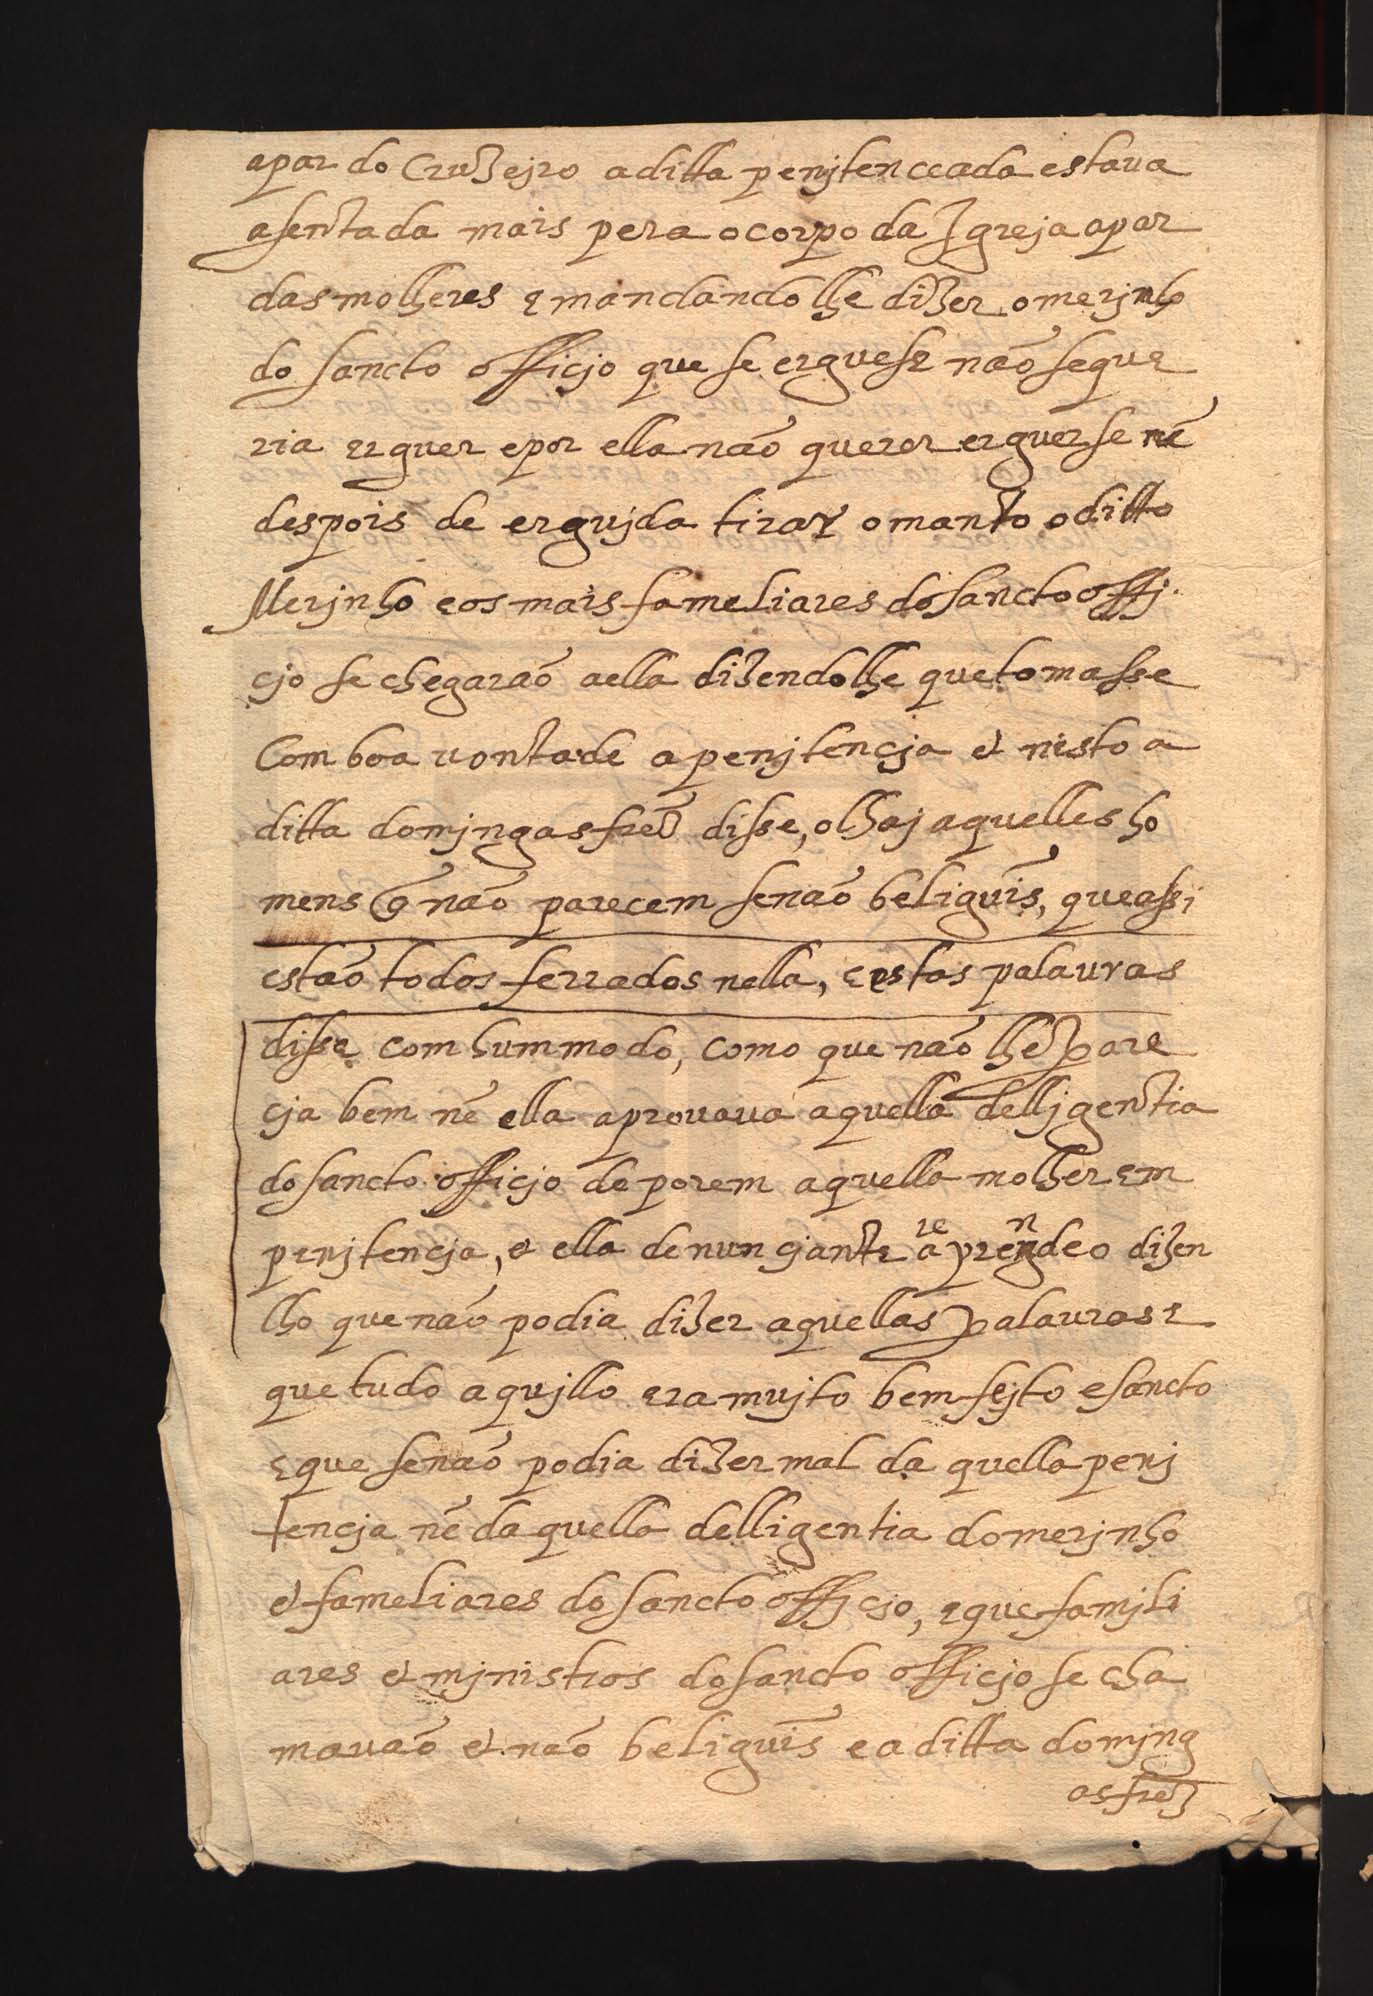 apar do Cruzejro a ditta penjtenceada estaua
asentada mais pera o corpo da Igreja apar
das molheres e mandandolhe dizer o merjnho
do sancto officjo que se erguese não se que
ria erguer e por ella não querer erguerse nẽ
despois de ergujda tirar o manto o ditto
Merjnho e os mais fameliares do sancto offj.
cjo se chegarão a ella dizendolhe que tomasse
Com boa uontade a penjtencja et nisto a
ditta domjngas frz̃ disse, olhaj aquelles ho
mens q̃ não parecem senão beliguĩs, que assi
estão todos ferrados nella, e estas palauras
disse com hum modo, como que não lhe pare
cja bem nẽ ella aprouaua aquella delljgentia
do sancto officjo de porem aquella molher em
penjtencja, e ella denuncjante a re prendeo dizen
lho que não podia dizer aquellas palauras e
que tudo aqujllo era mujto bem fejto e sancto
e que se não podia dizer mal da quella penj
tencja nẽ da quella delligentia do merjnho
et fameliares do sancto offjcjo, e que famjli
ares et mjnistros do sancto officjo se cha
mauão et não beliguĩs e a ditta domjng
as frz̃